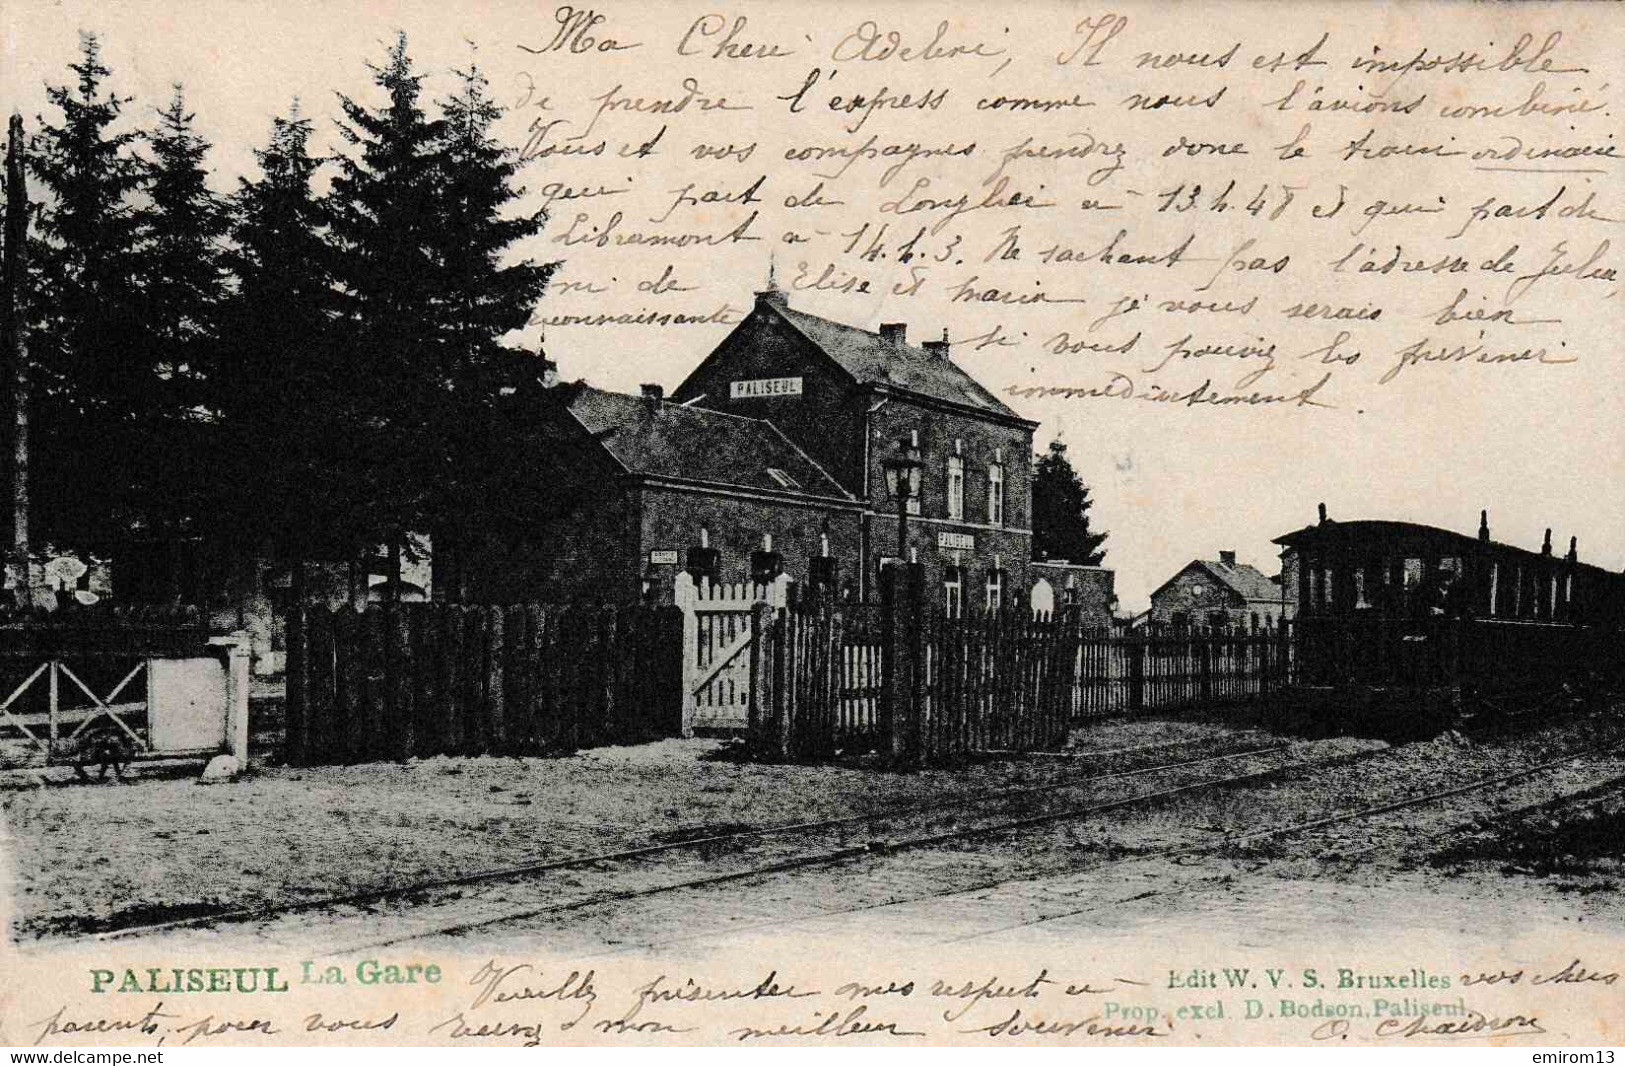 Ma Cheri Adelini, Il nous est impossible
de prendre l'express comme nous l'avions combiné.
Vous et vos compagnes prendrez donc le train ordinaire
qui part de Longlier à 13.h.48 et qui part de
Libramont à 14.h.3. Ne sachant pas l'adresse de Julia,
ni de Elise et Maria je vous serais bien
reconnaissante si vous pouviez les prévenir
immédiatement.
PALISEUL
PALISEUL
PALISEUL La Gare
Edit W. V. S. Bruxelles
Prop. excl. D. Bodson, Paliseul.
Veuillez présenter mes respects à vos chers
parents, pour vous recevez mon meilleur souvenir. O. Chaidron
www.delcampe.net
emirom13